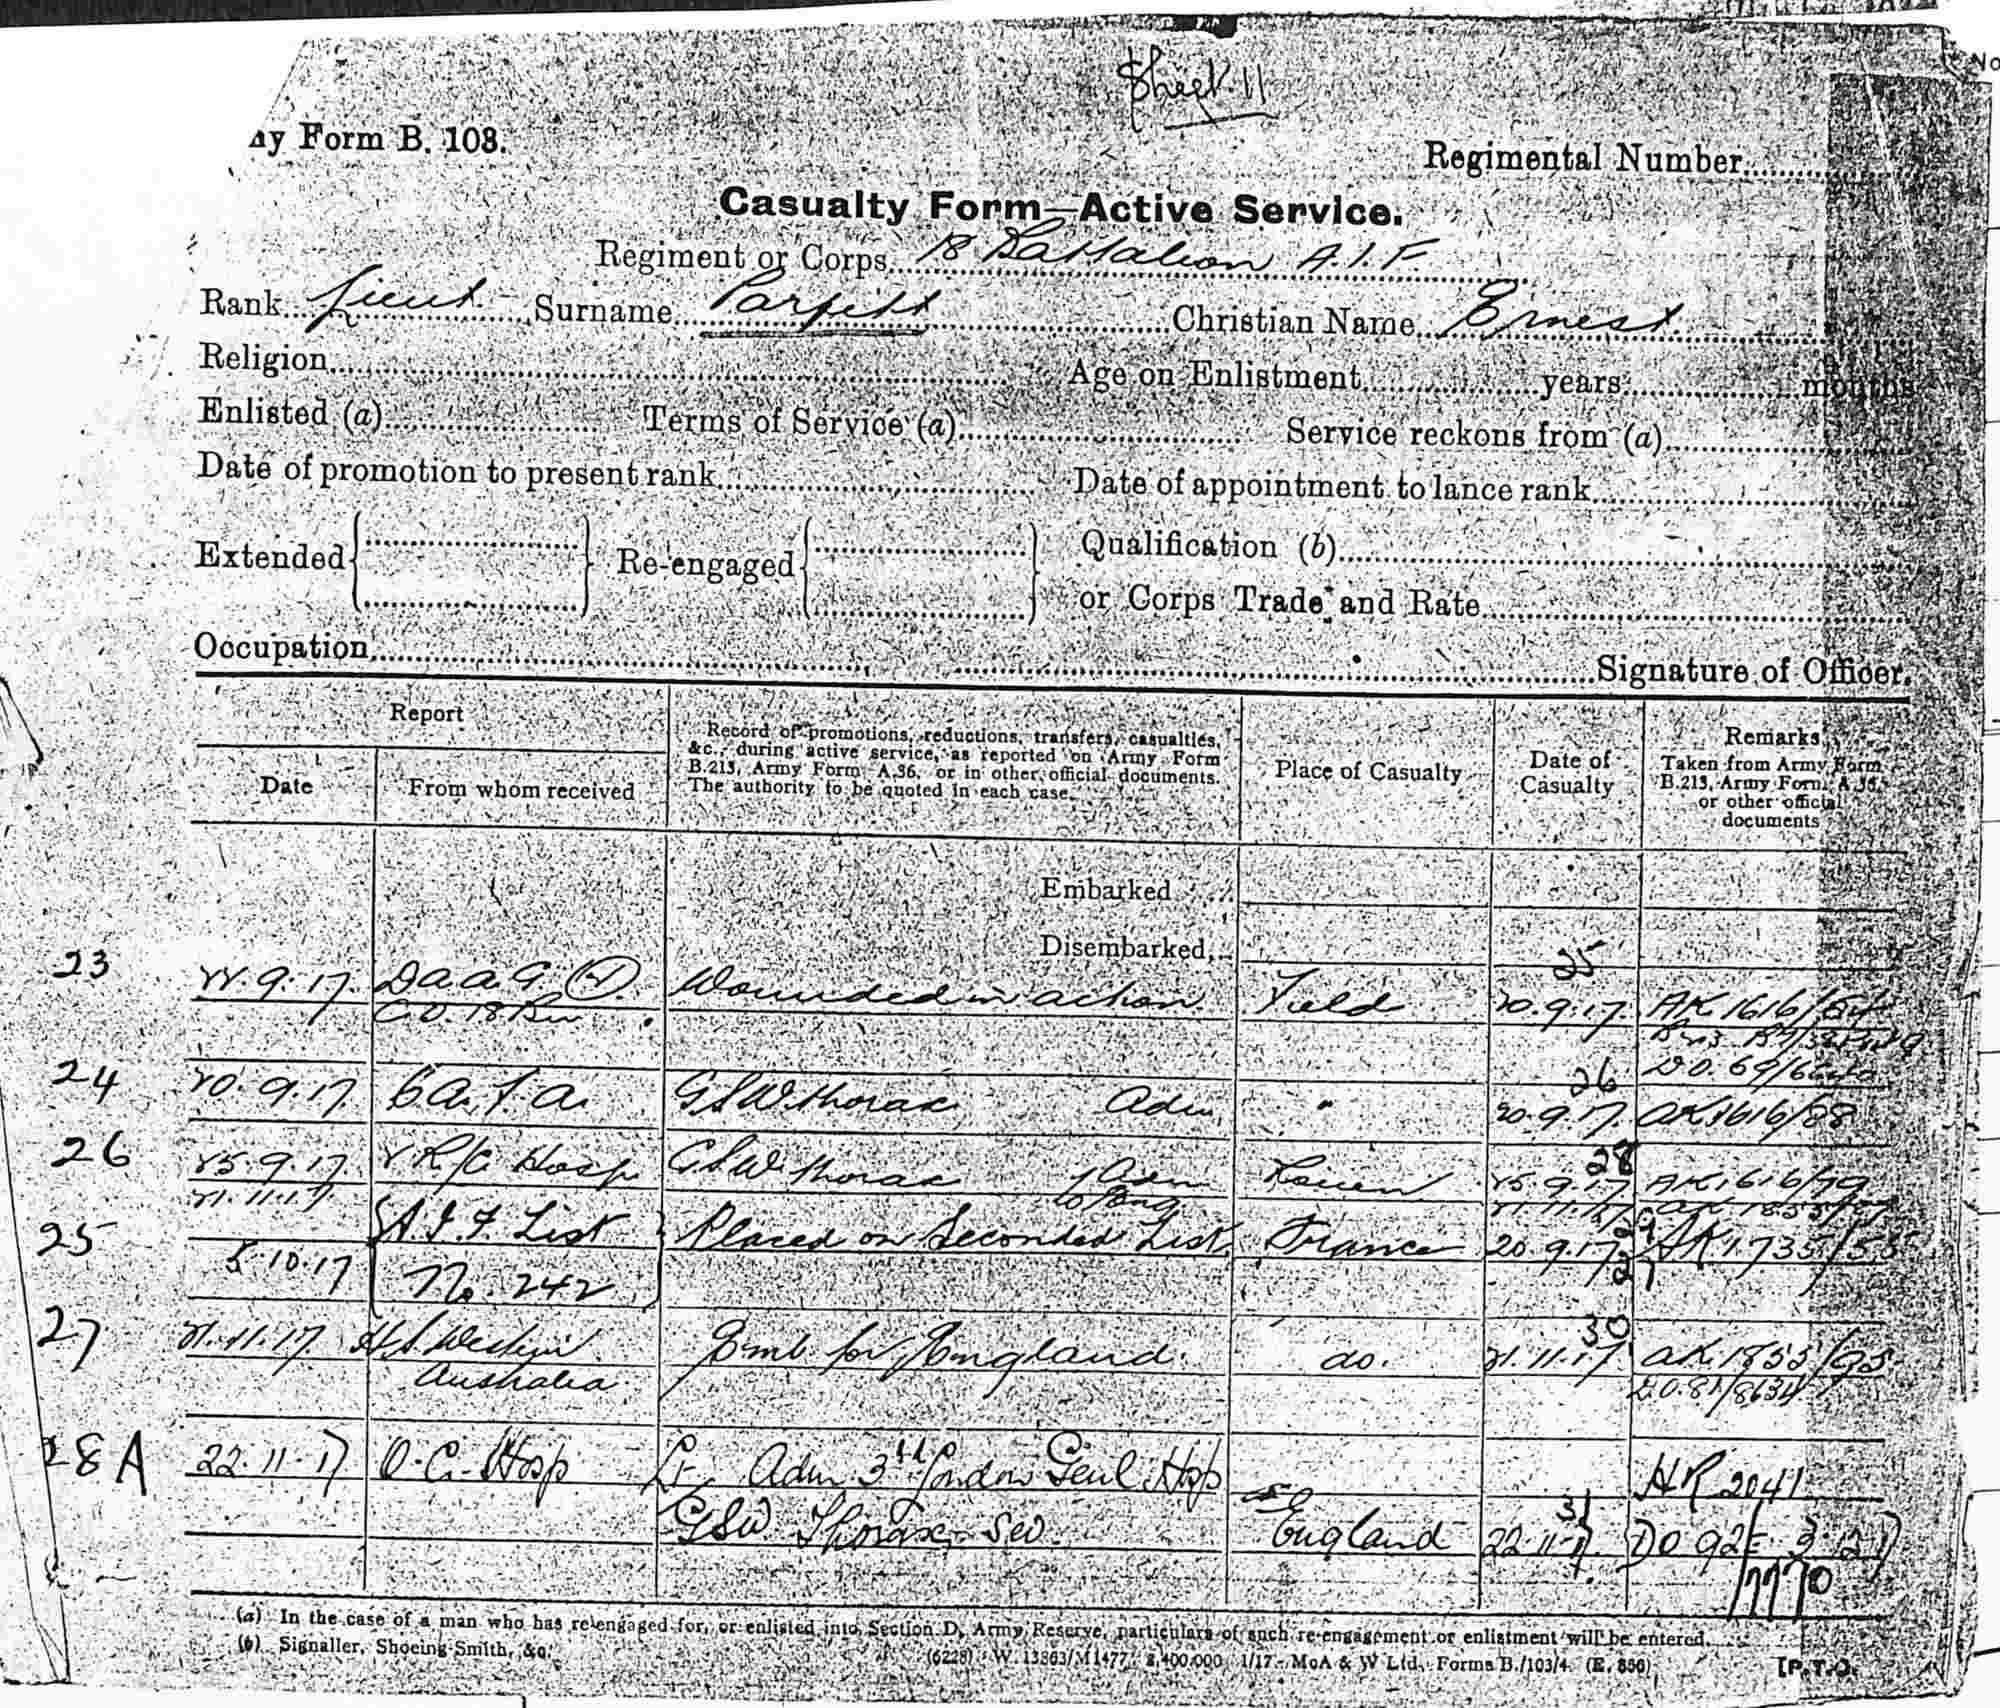 Sheet 11
ny Form B. 103.
Regimental Number
Casualty Form—Active Service.
Regiment or Corps 18 Battalion A.I.F.
Rank Lieut Surname Parfitt Christian Name Ernest
Religion Age on Enlistment years months
Enlisted (a) Terms of Service (a) Service reckons from (a)
Date of promotion to present rank Date of appointment to lance rank
Extended Re-engaged Qualification (b)
or Corps Trade and Rate
Occupation Signature of Officer.
Report
Date From whom received
Record of promotions, reductions, transfers, casualties,
&c., during active service, as reported on Army Form
B.213, Army Form A.36, or in other official documents.
The authority to be quoted in each case.
Place of Casualty
Date of
Casualty
Remarks
Taken from Army Form
B.213, Army Form A.36,
or other official
documents
Embarked
Disembarked
25
23 22.9.17. D.A.A.G. Wounded in action Field 20.9.17. AK 1616/
C.O. 18 Bn
D.O. 69/
26
24 20.9.17. 6 a.f.a. GSW thorax Adm " 20.9.17. AK 1616/88
28
26 25.9.17. 2 R/C Hosp GSW thorax Adm Rouen 25.9.17 AK 1616/79
21.11.17 to Eng 21.11.17 AK 1855/
29
25 A.I.F. List Placed on Seconded List France 20.9.17 AK 1735/55
5.10.17 No. 242 27
30
27 21.11.17. H.S. Western Emb for England. do. 21.11.17. AK 1855/95
Australia D.O. 81/8634
28A 22.11.17 O.C. Hosp Lt Adm 3rd London Genl Hosp HR 2041
31
GSW Thorax Sev. England 22.11.17. DO 92 3.12.17
7770
(a) In the case of a man who has re-engaged for, or enlisted into Section D, Army Reserve, particulars of such re-engagement or enlistment will be entered.
(b) Signaller, Shoeing-Smith, &c.
(6228) W. 13863/M1477 2,400,000 1/17 McA & W Ltd. Forms B./103/4 (E. 856) [P.T.O.